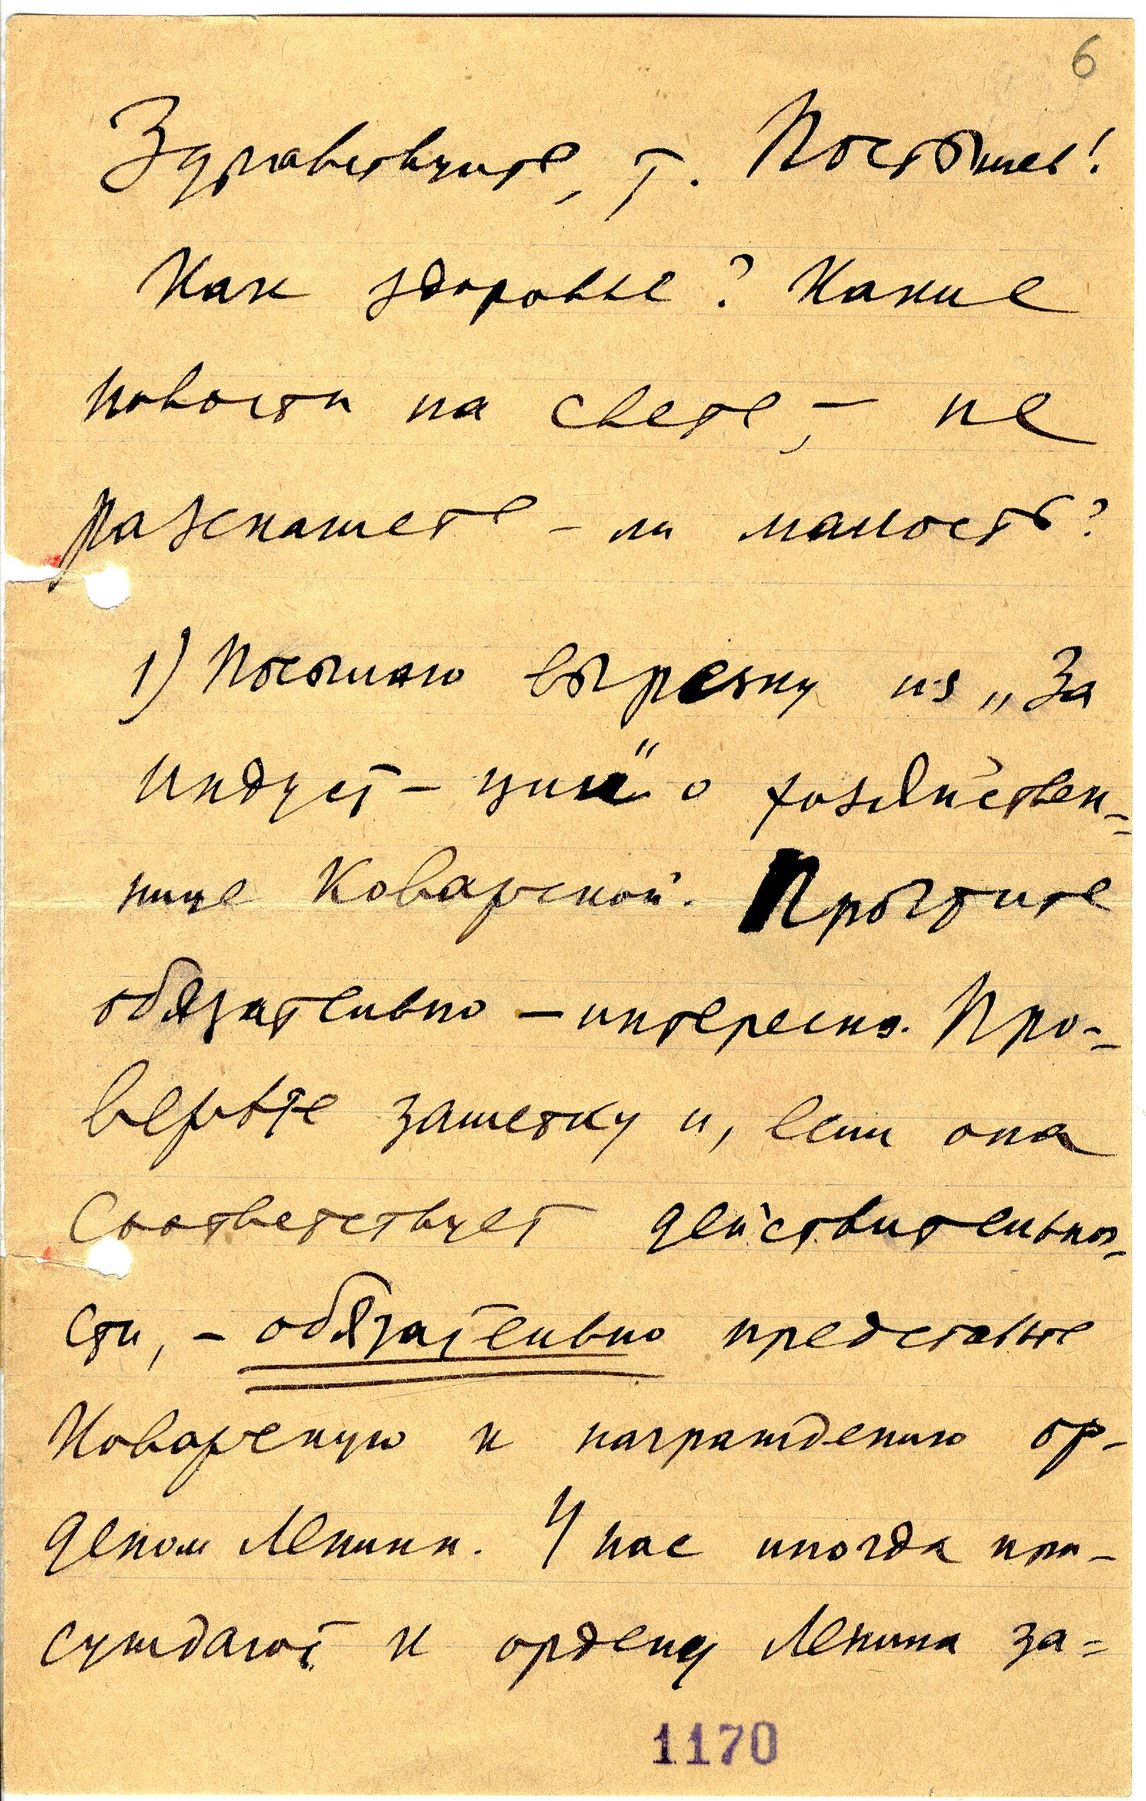 6
Здравствуйте, т. Постышев!
Как здоровье? Какие
новости на свете, — не
разскажете - ли малость?
1) Посылаю вырезку из „За
индуст-ции“ о хозяйствен-
нице Коварской. Прочтите
обязательно — интересно. Про-
верьте заметку и, если она
соответствует действительнос-
сти, — обязательно представьте
Коварскую к награждению ор-
деном Ленина. У нас иногда при-
суждают к ордену Ленина за-
1170